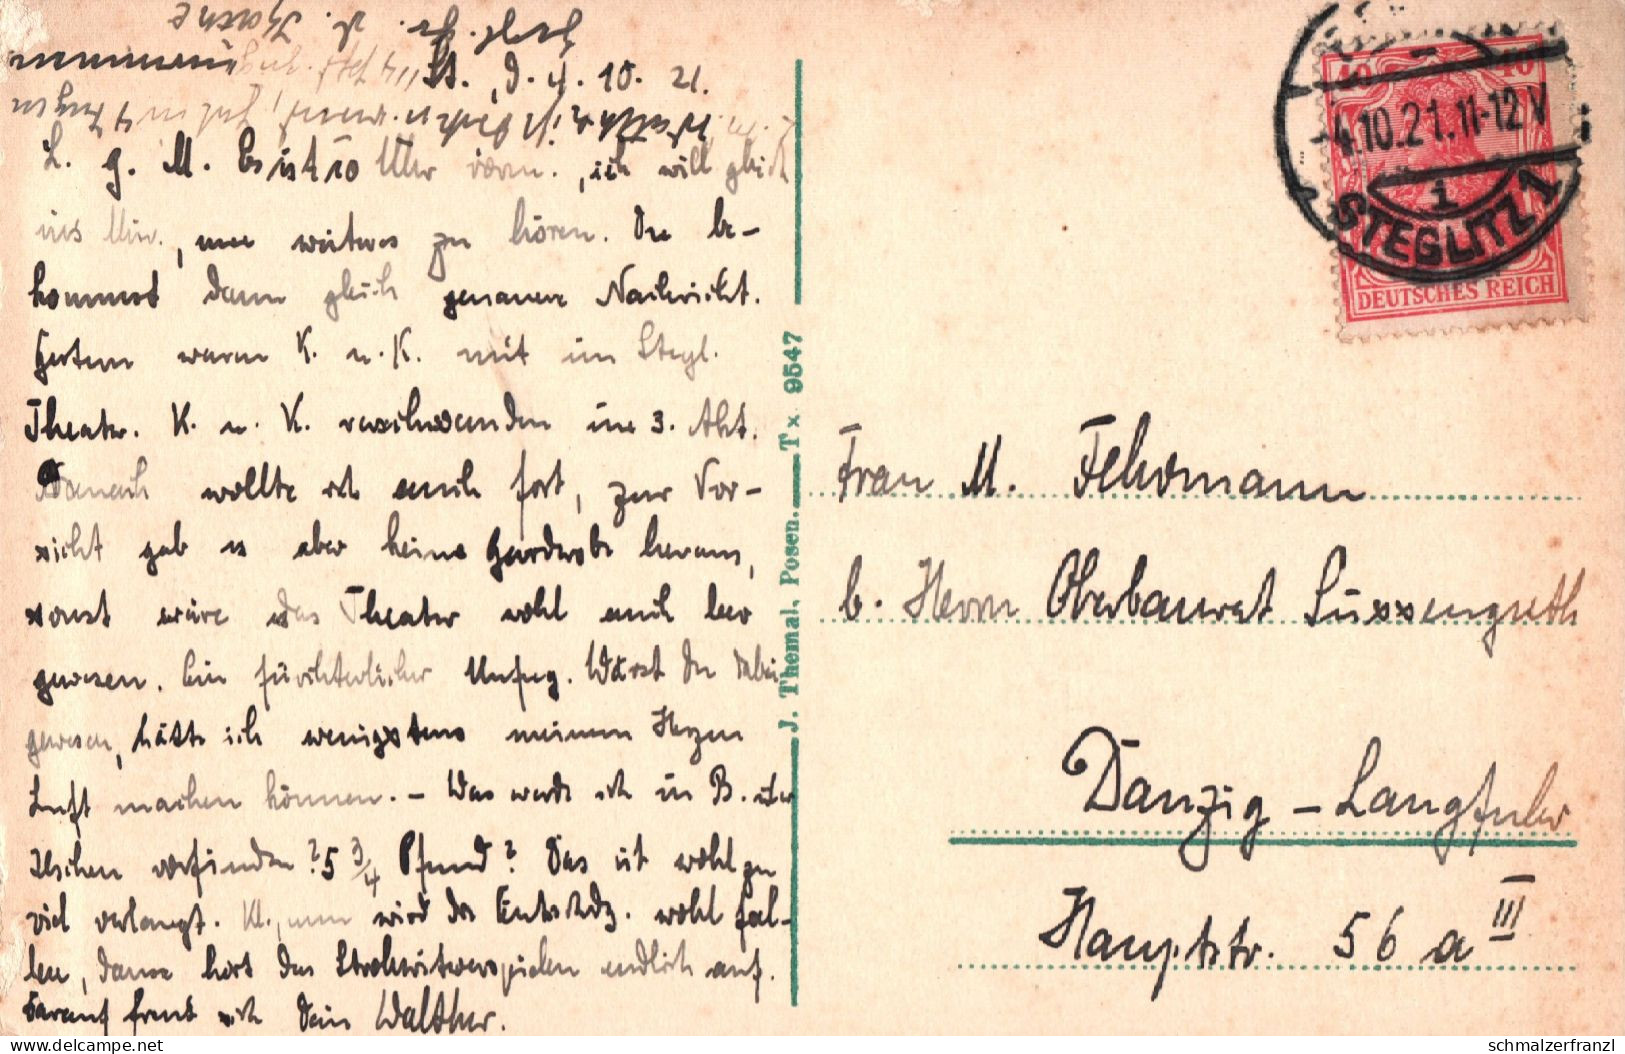 St., d. 4. 10. 21.
L. g. M. Es ist 10 Uhr vorm., ich will gleich
ins Min., um weiteres zu hören. Du be-
kommst dann gleich genauere Nachricht.
Gestern waren K. u. K. mit im Stegl.
Theater. K. u. K. verschwanden im 3. Akt.
Danach wollte ich auch fort, zur Vor-
sicht gab es aber keine Garderobe heraus,
sonst wäre das Theater wohl auch leer
gewesen. Ein fürchterlicher Unfug. Wärst Du dabei
gewesen, hätte ich wenigstens meinem Herzen
Luft machen können. - Was werde ich in B. über
Ilschen vorfinden? 5 3/4 Pfund? Das ist wohl zu
viel verlangt. Kl., nun wird die Entscheidg. wohl fal-
len, dann hört das Strohwitwerspielen endlich auf.
Darauf freut sich Dein Walther.
J. Themal, Posen. Tx 9547
10 10
4.10.21.11-12V
1
STEGLITZ 1
DEUTSCHES REICH
Frau M. Fehrmann
b. Herrn Oberbaurat Süssenguth
Danzig-Langfuhr
Hauptstr. 56 a III
schmalzerfranzl
delcampe.net